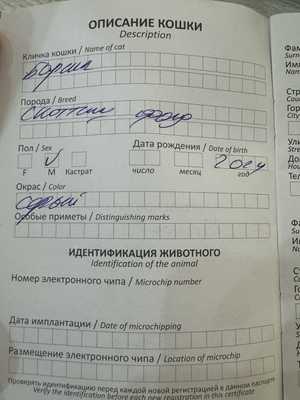 ОПИСАНИЕ КОШКИ
Description
Кличка кошки / Name of cat
Порода / Breed
Скоттиш фолд
Пол / Sex
Дата рождения / Date of birth
F М Кастрат
число месяц год
2024
Окрас / Color
серый
Особые приметы / Distinguishing marks
ИДЕНТИФИКАЦИЯ ЖИВОТНОГО
Identification of the animal
Номер электронного чипа / Microchip number
Дата имплантации / Date of microchipping
Размещение электронного чипа / Location of microchip
Проверять идентификацию перед каждой новой регистрацией в данном паспорте
Verify the identification before each new registration in this certificate